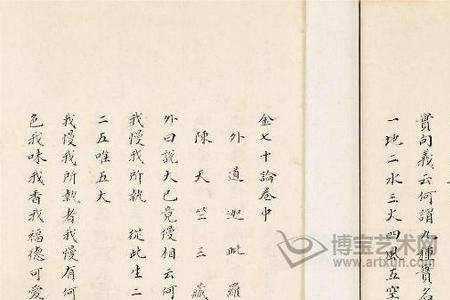 實句義云何謂九種實名
一地二水三火四風五空
金七十論卷中
外道迦毗羅
陳天竺三藏
外曰說大已竟慢相云何
我慢我所執 從此生二
二五唯五大
我慢我所執者我慢有何
色我味我香我福德可愛
博宝艺术网
www.artxun.com